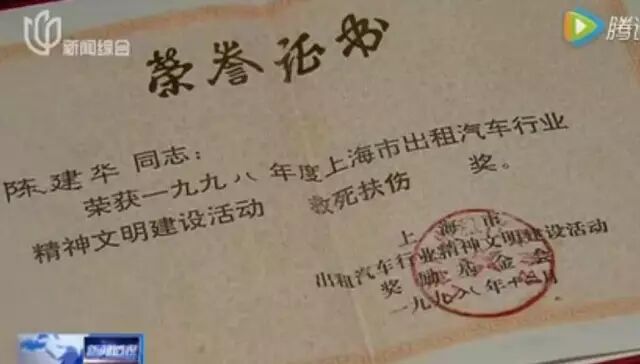 新闻综合
腾讯
荣誉证书
陈建华 同志：
荣获一九九八年度上海市出租汽车行业
精神文明建设活动 救死扶伤 奖。
上海市
出租汽车行业精神文明建设活动
奖励基金会
一九九八年十二月